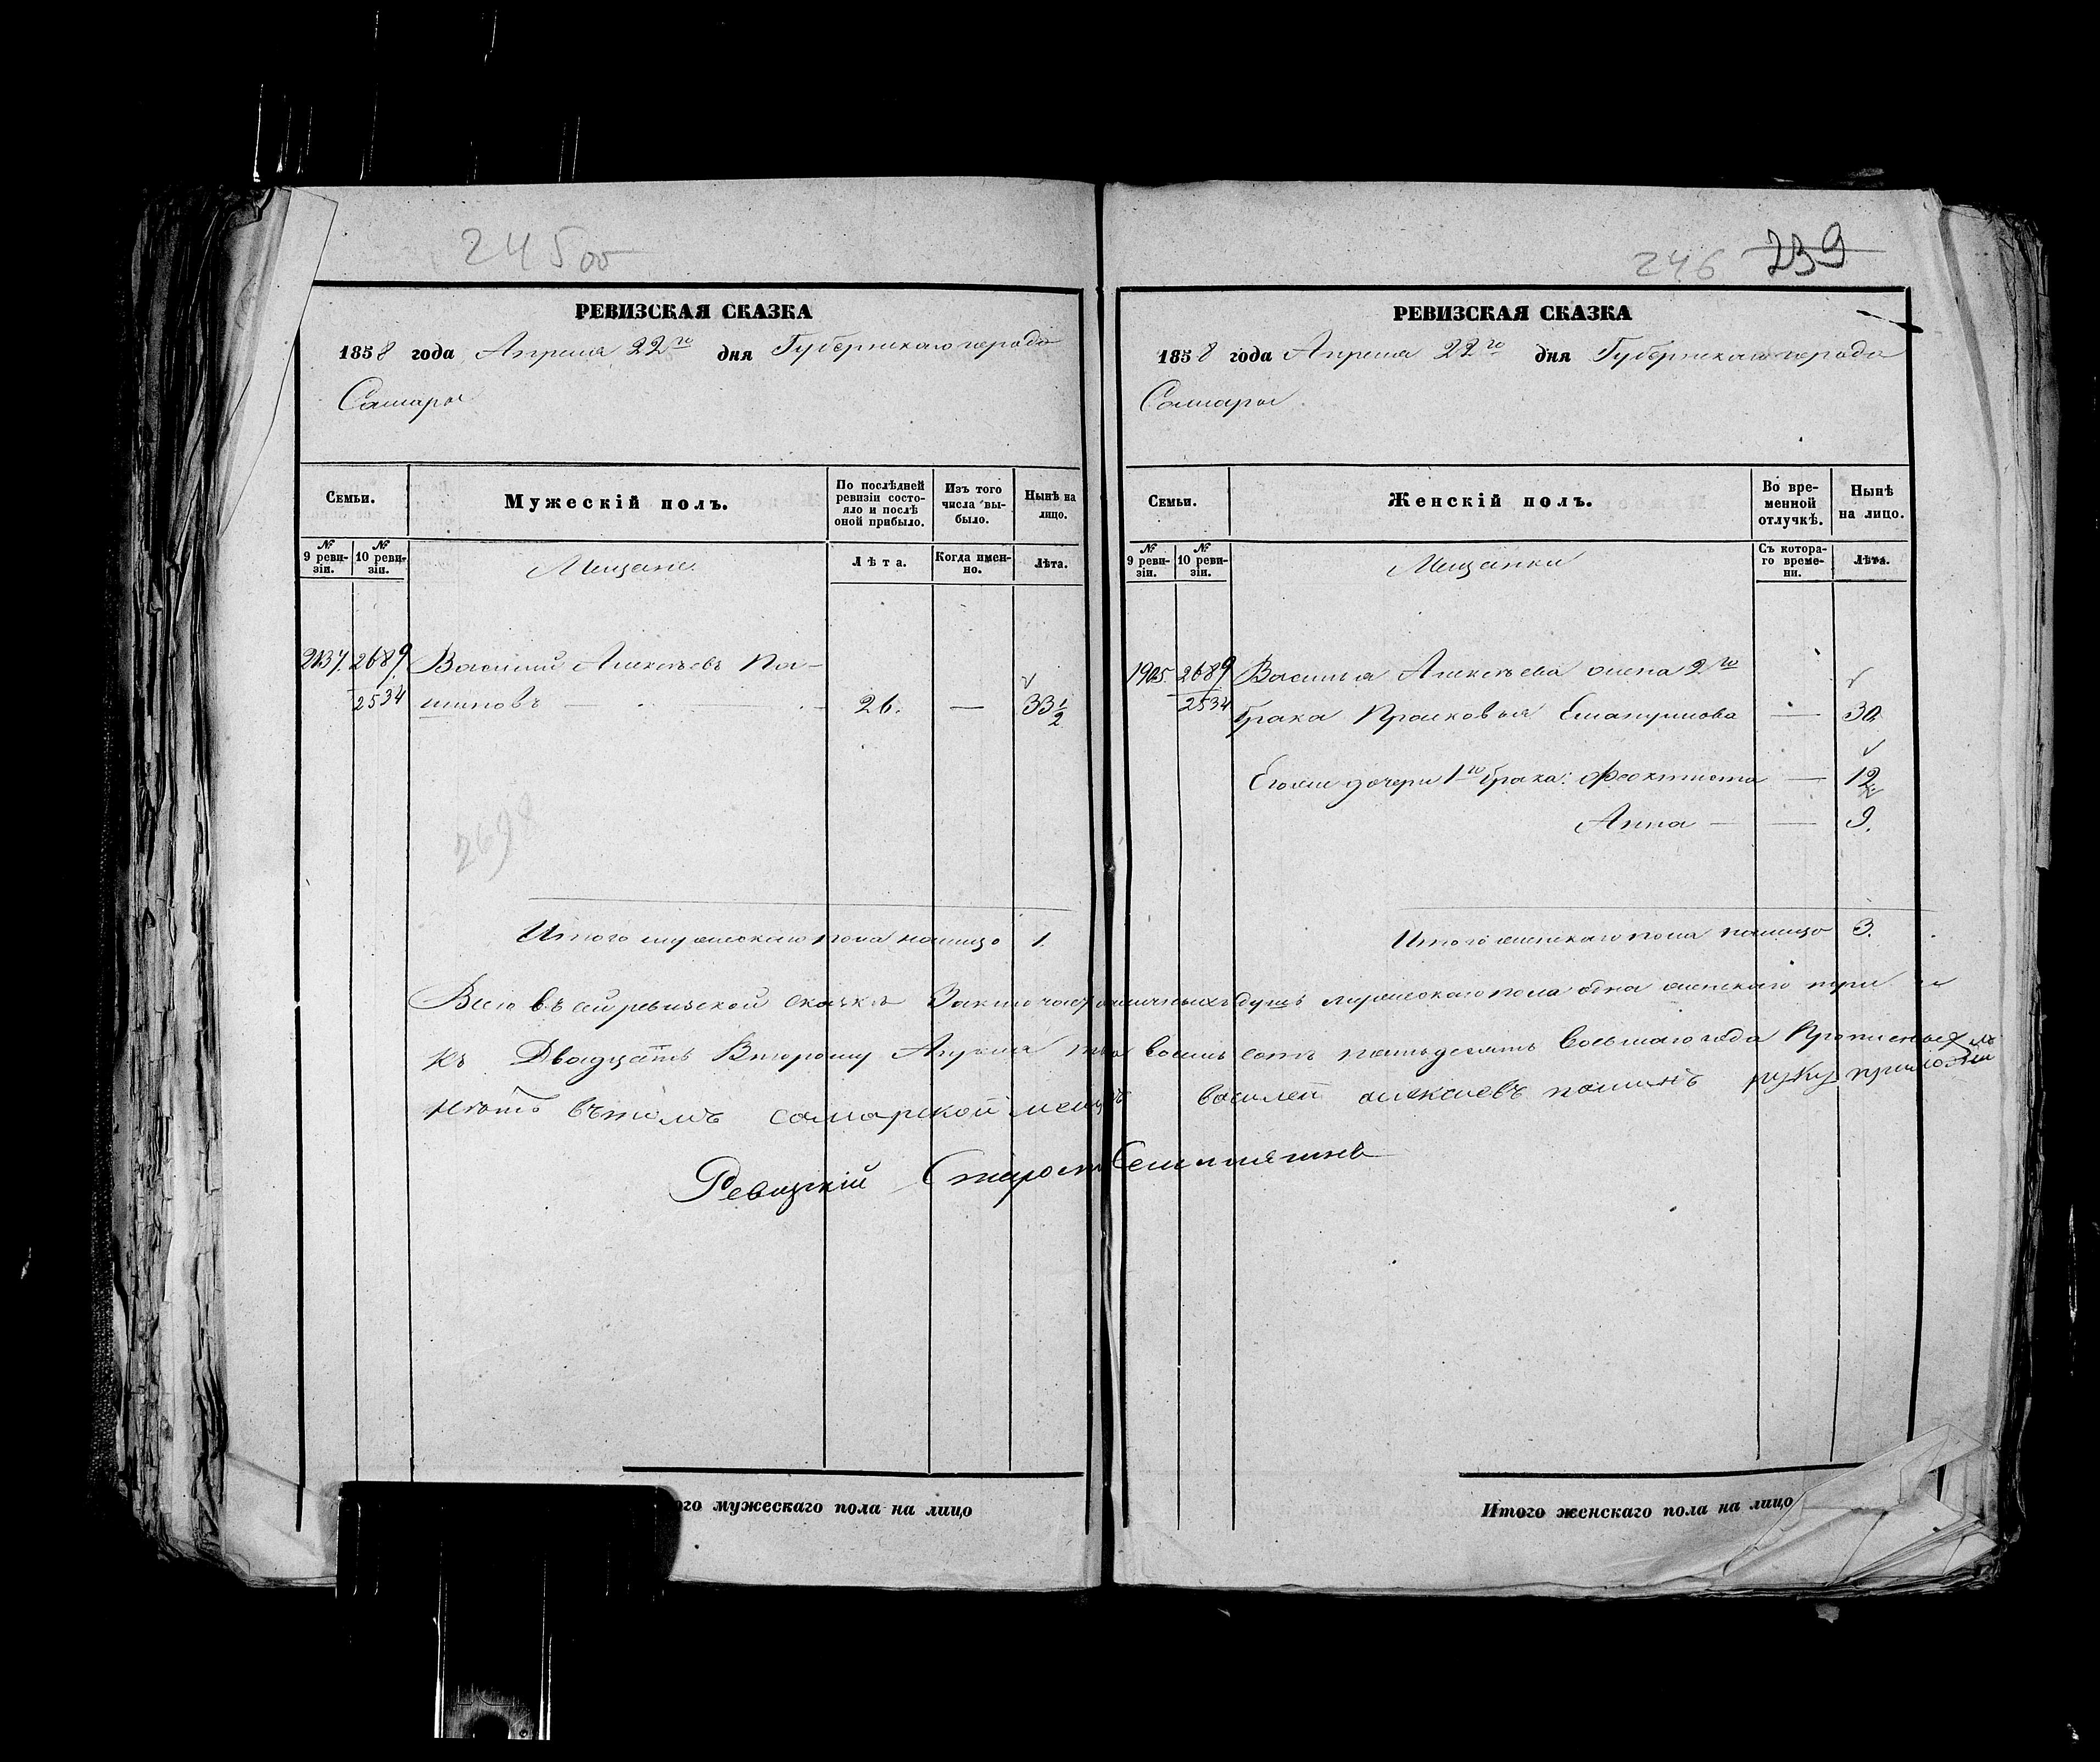 245об
РЕВИЗСКАЯ СКАЗКА
1858 года Апреля 22го дня Губернскаго города
Самары
Семьи.
Мужескій полъ.
По послѣдней ревизіи состо-
яло и послѣ
оной прибыло.
Изъ того
числа вы-
было.
Нынѣ на
лицо.
№ 9 реви-
зіи.
№ 10 реви-
зіи.
Мещане.
Лѣта.
Когда имен-
но.
Лѣта.
2137. 2689. Василий Алексѣевъ Па-
2534 шиновъ — 26. — 33 1/2
2698
Итого мужескаго пола налицо 1.
246 239
РЕВИЗСКАЯ СКАЗКА
1858 года Апреля 22го дня Губернскаго города
Самары
Семьи.
Женскій полъ.
Во вре-
менной
отлучкѣ.
Нынѣ
на лицо.
№ 9 реви-
зіи.
№ 10 реви-
зіи.
Мещанки
Съ котора-
го време-
ни.
Лѣта.
1905. 2689 Василья Алексѣева жена 2го
2534 брака Прасковья — 30.
Егоже дочери 1го брака: Феоктиста — 12
Анна — — 9.
Итого женскаго пола налицо 3.
Всего въ сей ревизской сказкѣ наличныхъ душъ мужескаго пола одна женскаго три и
къ Двадцать Второму Апреля восемь сотъ пятьдесятъ восьмаго года Прописныхъ
нѣтъ въ томъ самарской мещ василей алексиевъ пашинъ руку приложил
Ревизкій Староста
Итого мужескаго пола на лицо
Итого женскаго пола на лицо